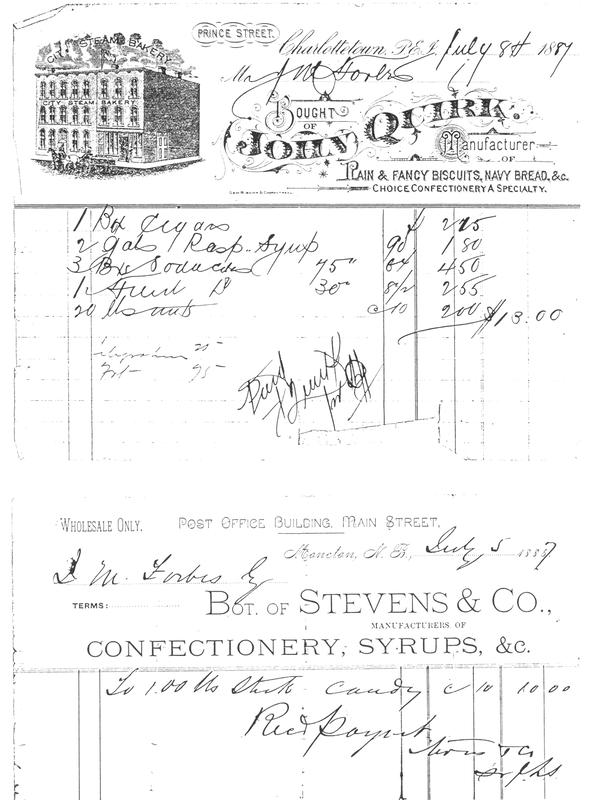 PRINCE STREET.
Charlottetown, P.E.I. July 8th 1887
CITY STEAM BAKERY
CITY STEAM BAKERY
Mr J M Forbes
BOUGHT
OF
JOHN QUIRK.
Manufacturer
OF
PLAIN & FANCY BISCUITS, NAVY BREAD, &c.
CHOICE CONFECTIONERY A SPECIALTY.
1 Box Cigars 2 25
2 Gals Rasp. Syrup 90 1 80
3 Bxs Sodas 75 4 50
1 30 8 1/2 2 55
20 lbs nuts c 10 2 00 $13.00
25
95
Paid
J Quirk
WHOLESALE ONLY. POST OFFICE BUILDING, MAIN STREET,
Moncton, N. B., July 5 1887
J M. Forbes Esq
TERMS:
BOT. OF STEVENS & CO.,
MANUFACTURERS OF
CONFECTIONERY, SYRUPS, &c.
To 100 lbs Stick Candy c 10 10 00
Recd Paymt
Stevens & Co